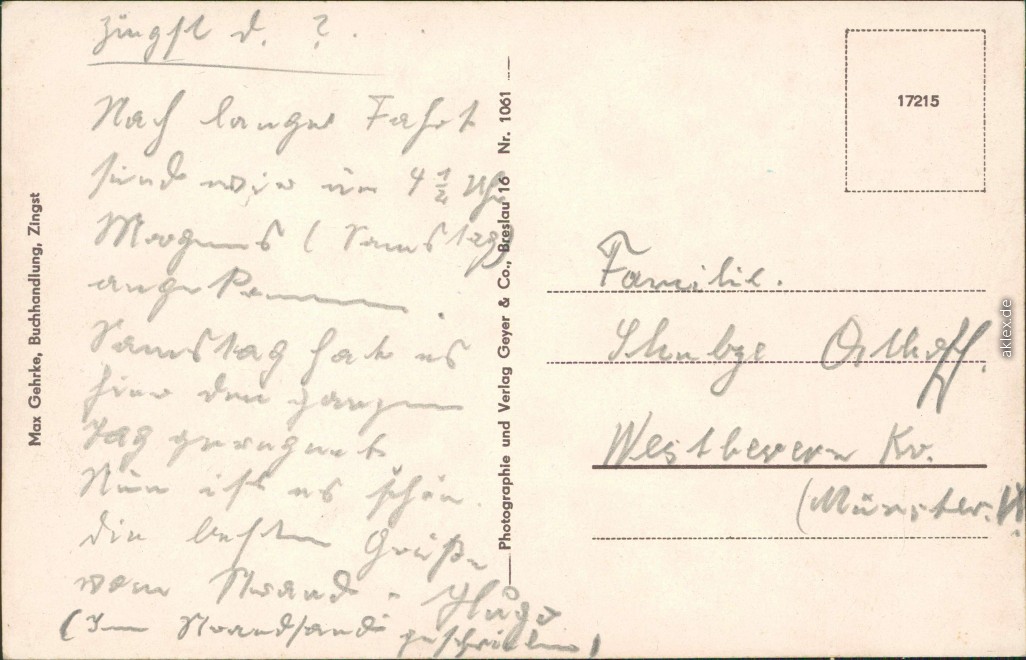 Zingst d. ?.
Nach langer Fahrt
sind wir um 4 1/2 Uhr
Morgens (Samstag)
angekommen.
Samstag hat es
hier den ganzen
Tag geregnet.
Nun ist es schön.
die besten Grüße
vom Strand - Hugo
(Im Strandsand geschrieben)
Max Gehrke, Buchhandlung, Zingst
Photographie und Verlag Geyer & Co., Breslau 16 Nr. 1061
17215
Familie.
Osthoff.
Westbevern Kr.
(Münster. W.
akpool.de